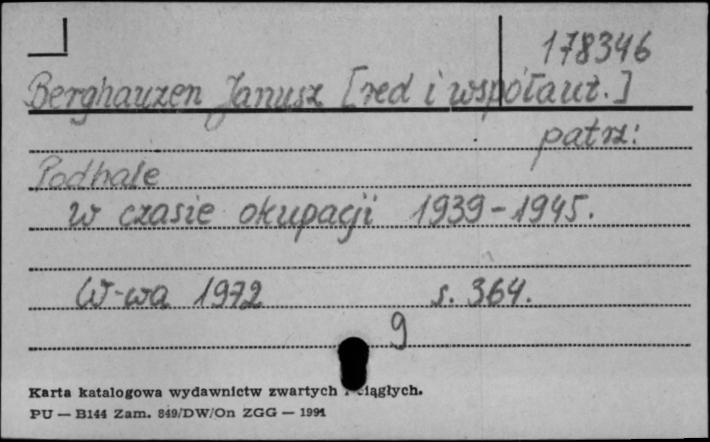 178346
Berghauzen Janusz [red i współaut.]
patrz:
Podhale
w czasie okupacji 1939-1945.
W-wa 1972 s. 364.
9
Karta katalogowa wydawnictw zwartych ciągłych.
PU — B144 Zam. 849/DW/On ZGG — 1991